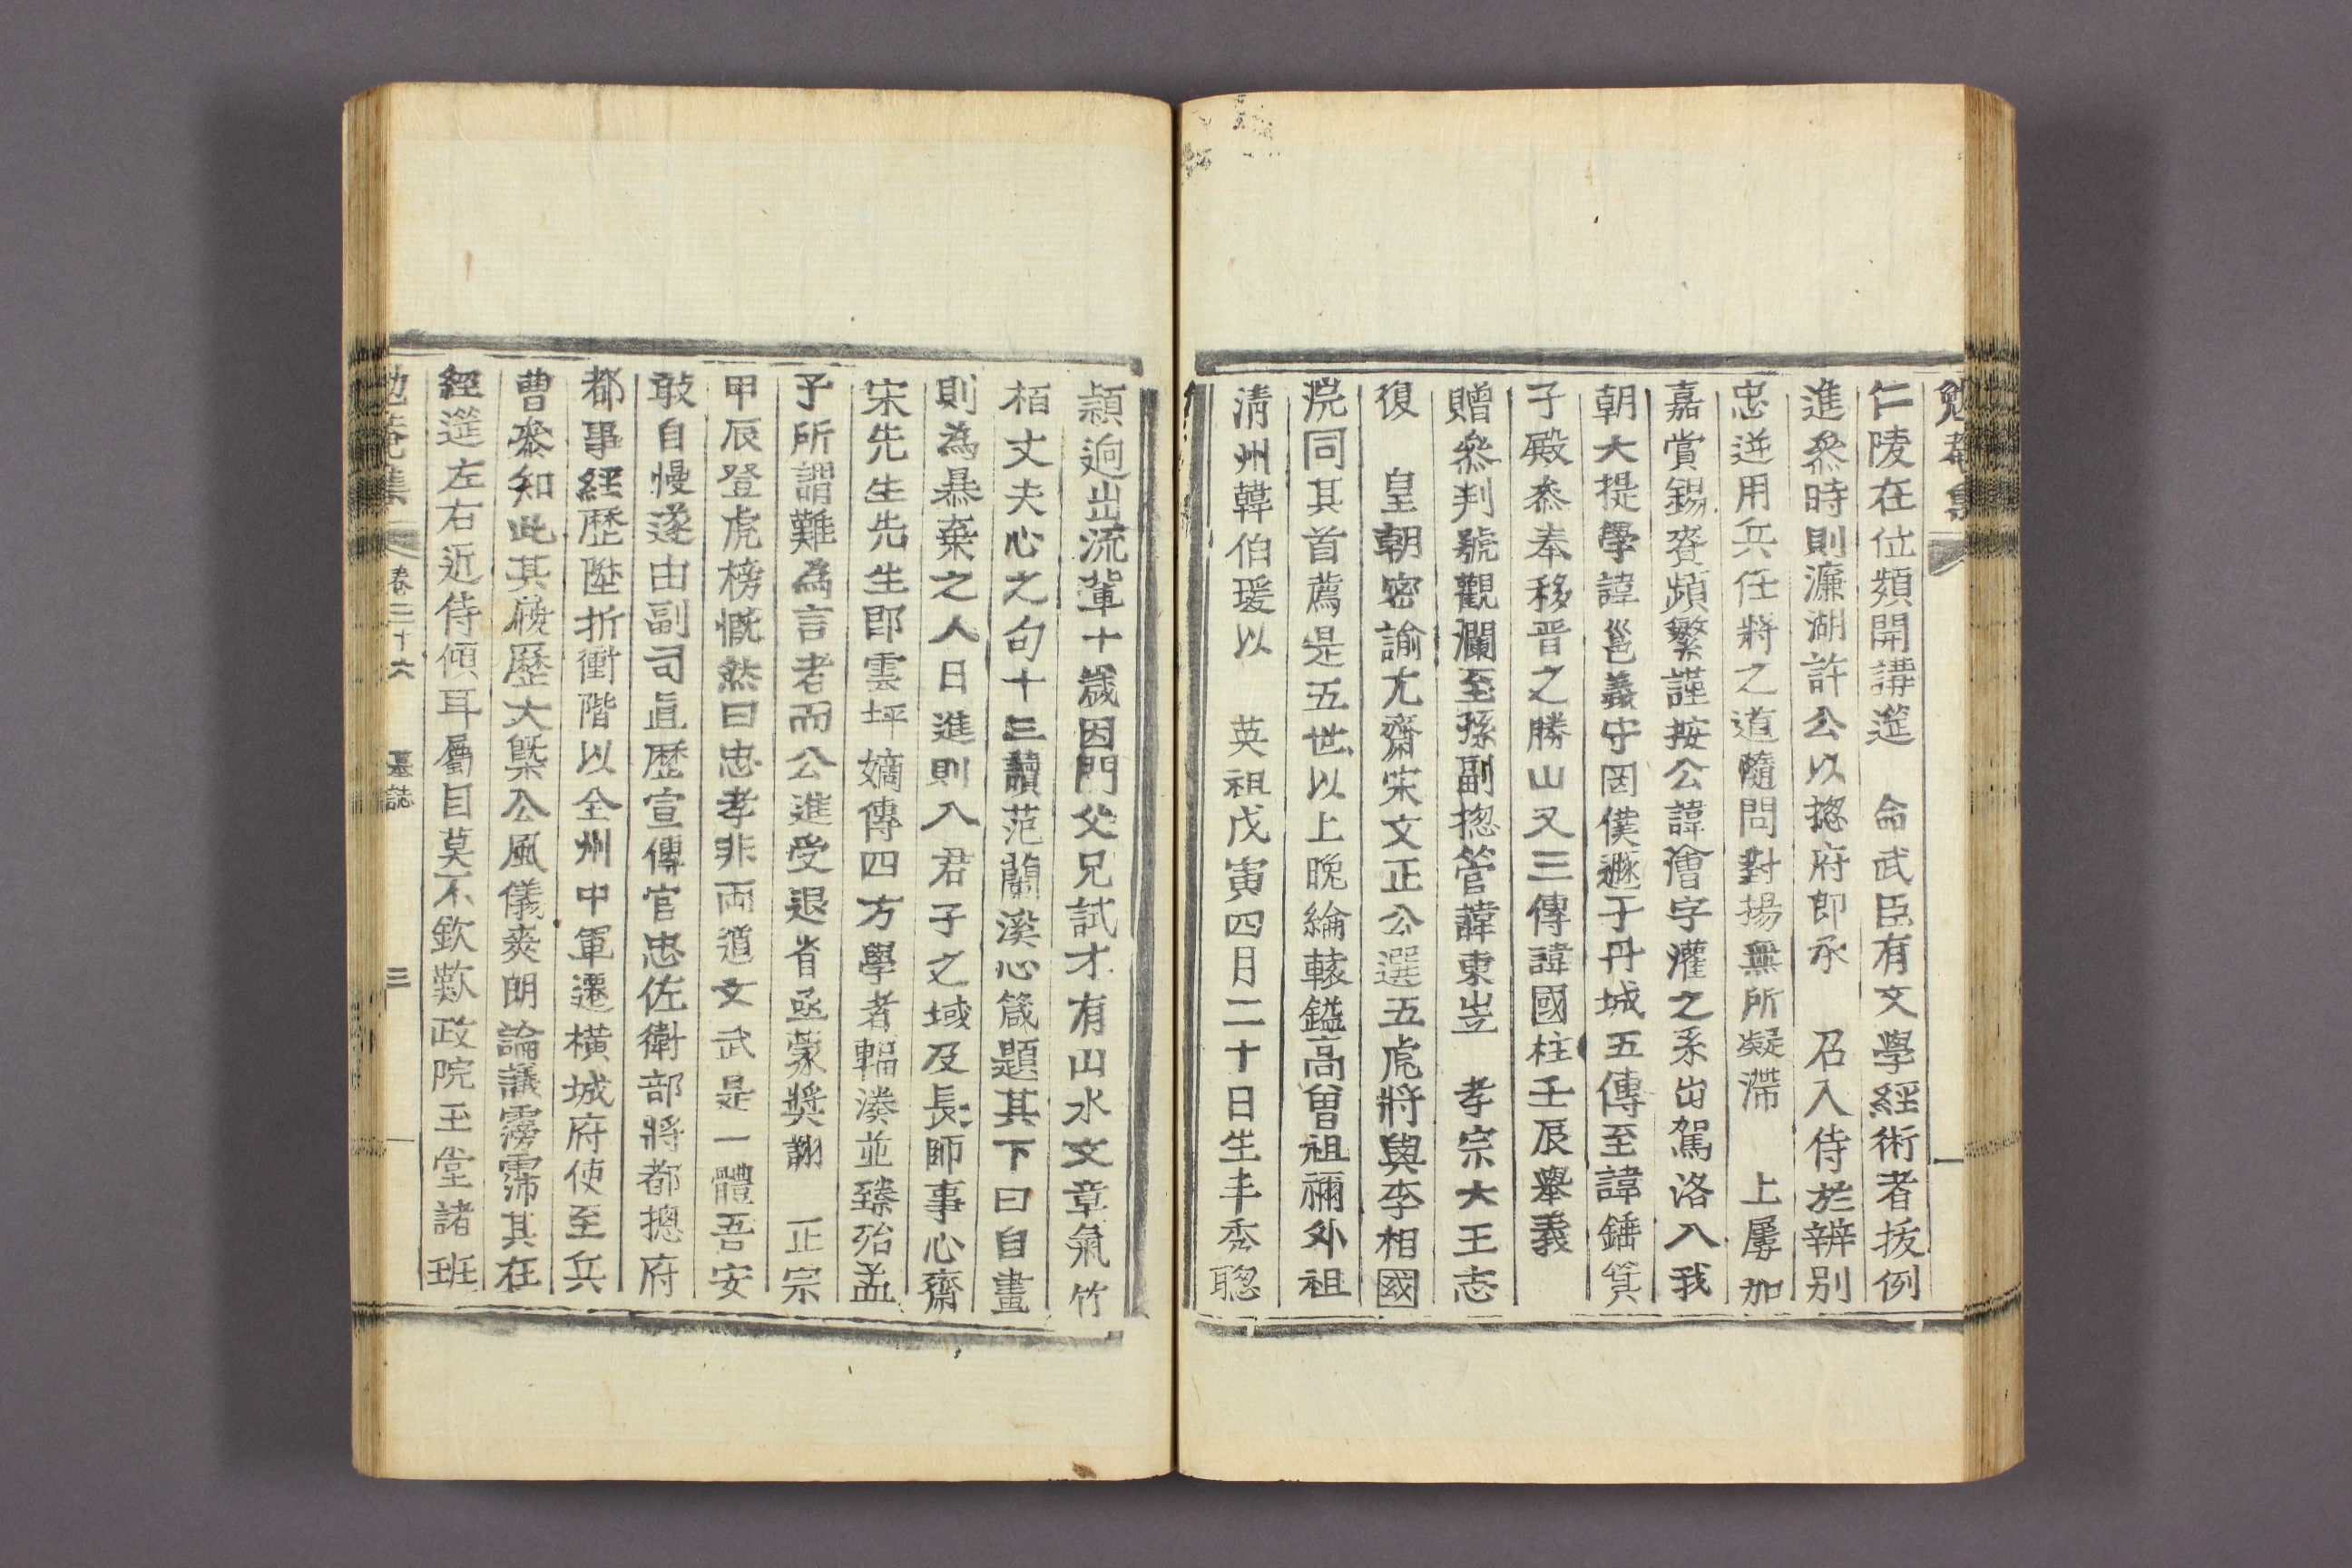 勉菴集
仁陵在位頻開講筵　命武臣有文學經術者拔例
進叅時則濂湖許公以摠府郎承　召入侍於辨別
忠逆用兵任將之道隨問對揚無所凝滯　上屢加
嘉賞錫賚頻繁謹按公諱澮字灌之系出駕洛入我
朝大提學諱邕義守罔僕遯于丹城五傳至諱錘箕
子殿叅奉移晋之勝山又三傳諱國柱壬辰擧義
贈叅判號觀瀾至孫副摠管諱東岦　孝宗大王志
復　皇朝密諭尤齋宋文正公選五虎將與李相國
浣同其首薦是五世以上晩綸轅鎰高曾祖禰外祖
淸州韓伯瑗以　英祖戊寅四月二十日生丰秀聰
穎逈出流輩十歲因門父兄試才有山水文章氣竹
栢丈夫心之句十三讀范蘭溪心箴題其下曰自畫
則為暴棄之人日進則入君子之域及長師事心齋
宋先生先生卽雲坪嫡傳四方學者輻湊並臻殆孟
子所謂難為言者而公進受退省亟蒙奬詡　正宗
甲辰登虎榜慨然曰忠孝非兩道文武是一體吾安
敢自慢遂由副司直歷宣傳官忠佐衛部將都摠府
都事經歷陞折衝階以全州中軍遷橫城府使至兵
曹叅知此其履歷大槩公風儀爽朗論議霶霈其在
經筵左右近侍傾耳屬目莫不欽歎政院玉堂諸班
勉菴集　卷三十六　墓誌　三